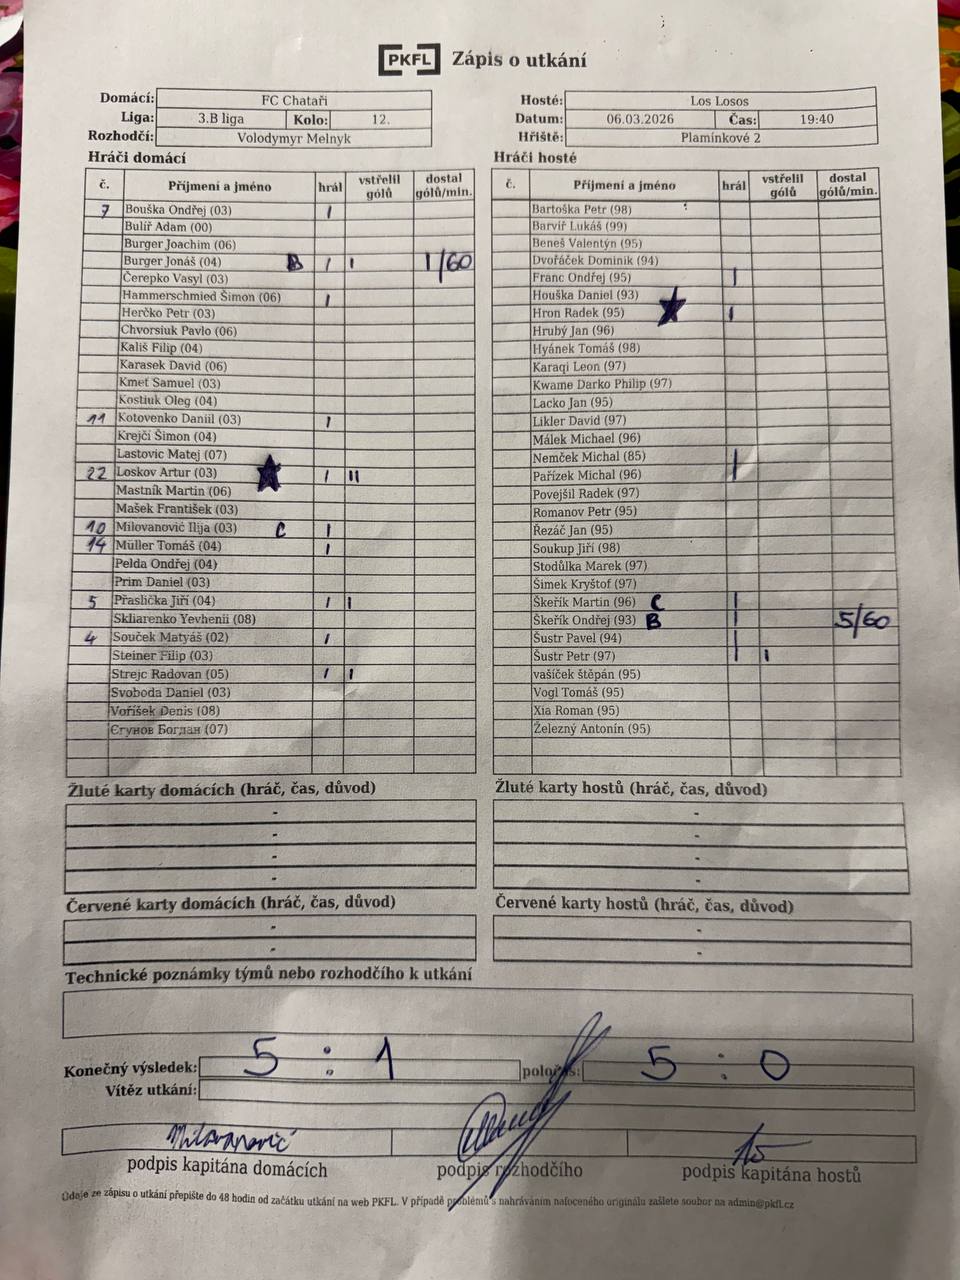 PKFL Zápis o utkání
Domácí: FC Chataři
Liga: 3.B liga Kolo: 12.
Rozhodčí: Volodymyr Melnyk
Hosté: Los Losos
Datum: 06.03.2026 Čas: 19:40
Hřiště: Plamínkové 2
Hráči domácí
č. Příjmení a jméno hrál vstřelil gólů dostal gólů/min.
7 Bouška Ondřej (03) I
Bulíř Adam (00)
Burger Joachim (06)
Burger Jonáš (04) B I I 1/60
Čerepko Vasyl (03)
Hammerschmied Šimon (06) I
Herčko Petr (03)
Chvorsiuk Pavlo (06)
Kališ Filip (04)
Karasek David (06)
Kmeť Samuel (03)
Kostiuk Oleg (04)
11 Kotovenko Daniil (03) I
Krejčí Šimon (04)
Lastovic Matej (07)
22 Loskov Artur (03) ★ I II
Mastník Martin (06)
Mašek František (03)
10 Milovanović Ilija (03) C I
14 Müller Tomáš (04) I
Pelda Ondřej (04)
Prim Daniel (03)
5 Přaslička Jiří (04) I I
Skliarenko Yevhenii (08)
4 Souček Matyáš (02) I
Steiner Filip (03)
Strejc Radovan (05) I I
Svoboda Daniel (03)
Voříšek Denis (08)
Єгунов Богдан (07)
Hráči hosté
č. Příjmení a jméno hrál vstřelil gólů dostal gólů/min.
Bartoška Petr (98)
Barvíř Lukáš (99)
Beneš Valentýn (95)
Dvořáček Dominik (94)
Franc Ondřej (95) I
Houška Daniel (93)
Hron Radek (95) ★ I
Hrubý Jan (96)
Hyánek Tomáš (98)
Karaqi Leon (97)
Kwame Darko Philip (97)
Lacko Jan (95)
Likler David (97)
Málek Michael (96)
Nemček Michal (85) I
Pařízek Michal (96) I
Povejšil Radek (97)
Romanov Petr (95)
Řezáč Jan (95)
Soukup Jiří (98)
Stodůlka Marek (97)
Šimek Kryštof (97)
Škeřík Martin (96) C I
Škeřík Ondřej (93) B I 5/60
Šustr Pavel (94) I
Šustr Petr (97) I I
vašíček štěpán (95)
Vogl Tomáš (95)
Xia Roman (95)
Železný Antonín (95)
Žluté karty domácích (hráč, čas, důvod)
-
-
-
-
Žluté karty hostů (hráč, čas, důvod)
-
-
-
-
Červené karty domácích (hráč, čas, důvod)
-
-
Červené karty hostů (hráč, čas, důvod)
-
-
Technické poznámky týmů nebo rozhodčího k utkání
Konečný výsledek: 5 : 1 poločas: 5 : 0
Vítěz utkání:
Milovanović
podpis kapitána domácích podpis rozhodčího podpis kapitána hostů
Údaje ze zápisu o utkání přepište do 48 hodin od začátku utkání na web PKFL. V případě problémů s nahráváním nafoceného originálu zašlete soubor na admin@pkfl.cz